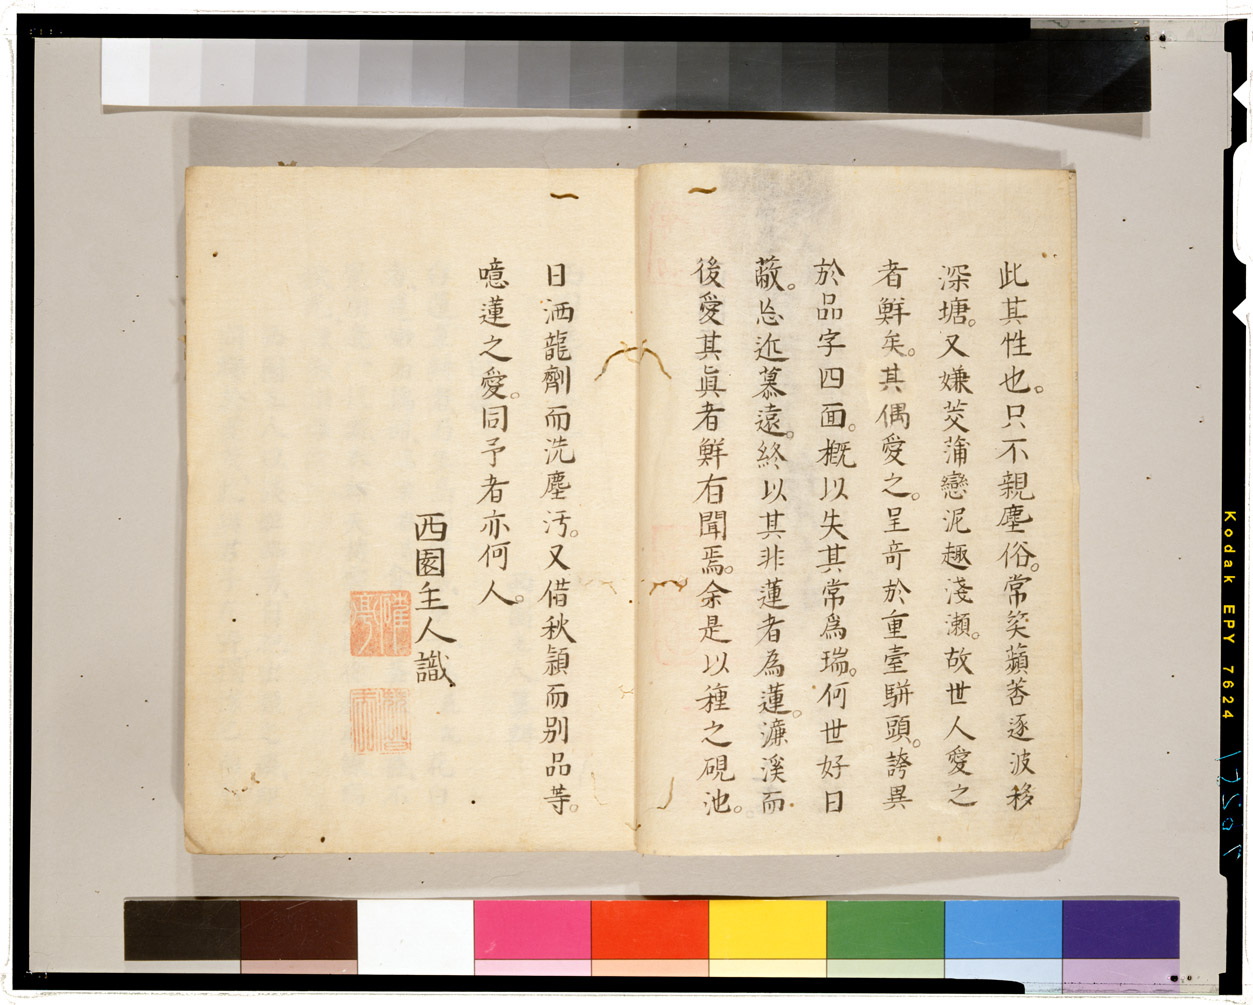 此其性也。只不親塵俗。常笑蘋荅逐波移
深塘。又嫌茭蒲戀泥趣淺瀬。故世人愛之
者鮮矣。其偶愛之。呈竒於重臺駢頭。誇異
於品字四面。概以失其常為瑞。何世好日
蔽。忽近慕遠。終以其非蓮者為蓮。濂溪而
後愛其眞者鮮有聞焉。余是以種之硯池。
日洒龍劑而洗塵汚。又借秋穎而別品等。
噫蓮之愛。同予者亦何人。
西園主人識
Kodak EPY 7624